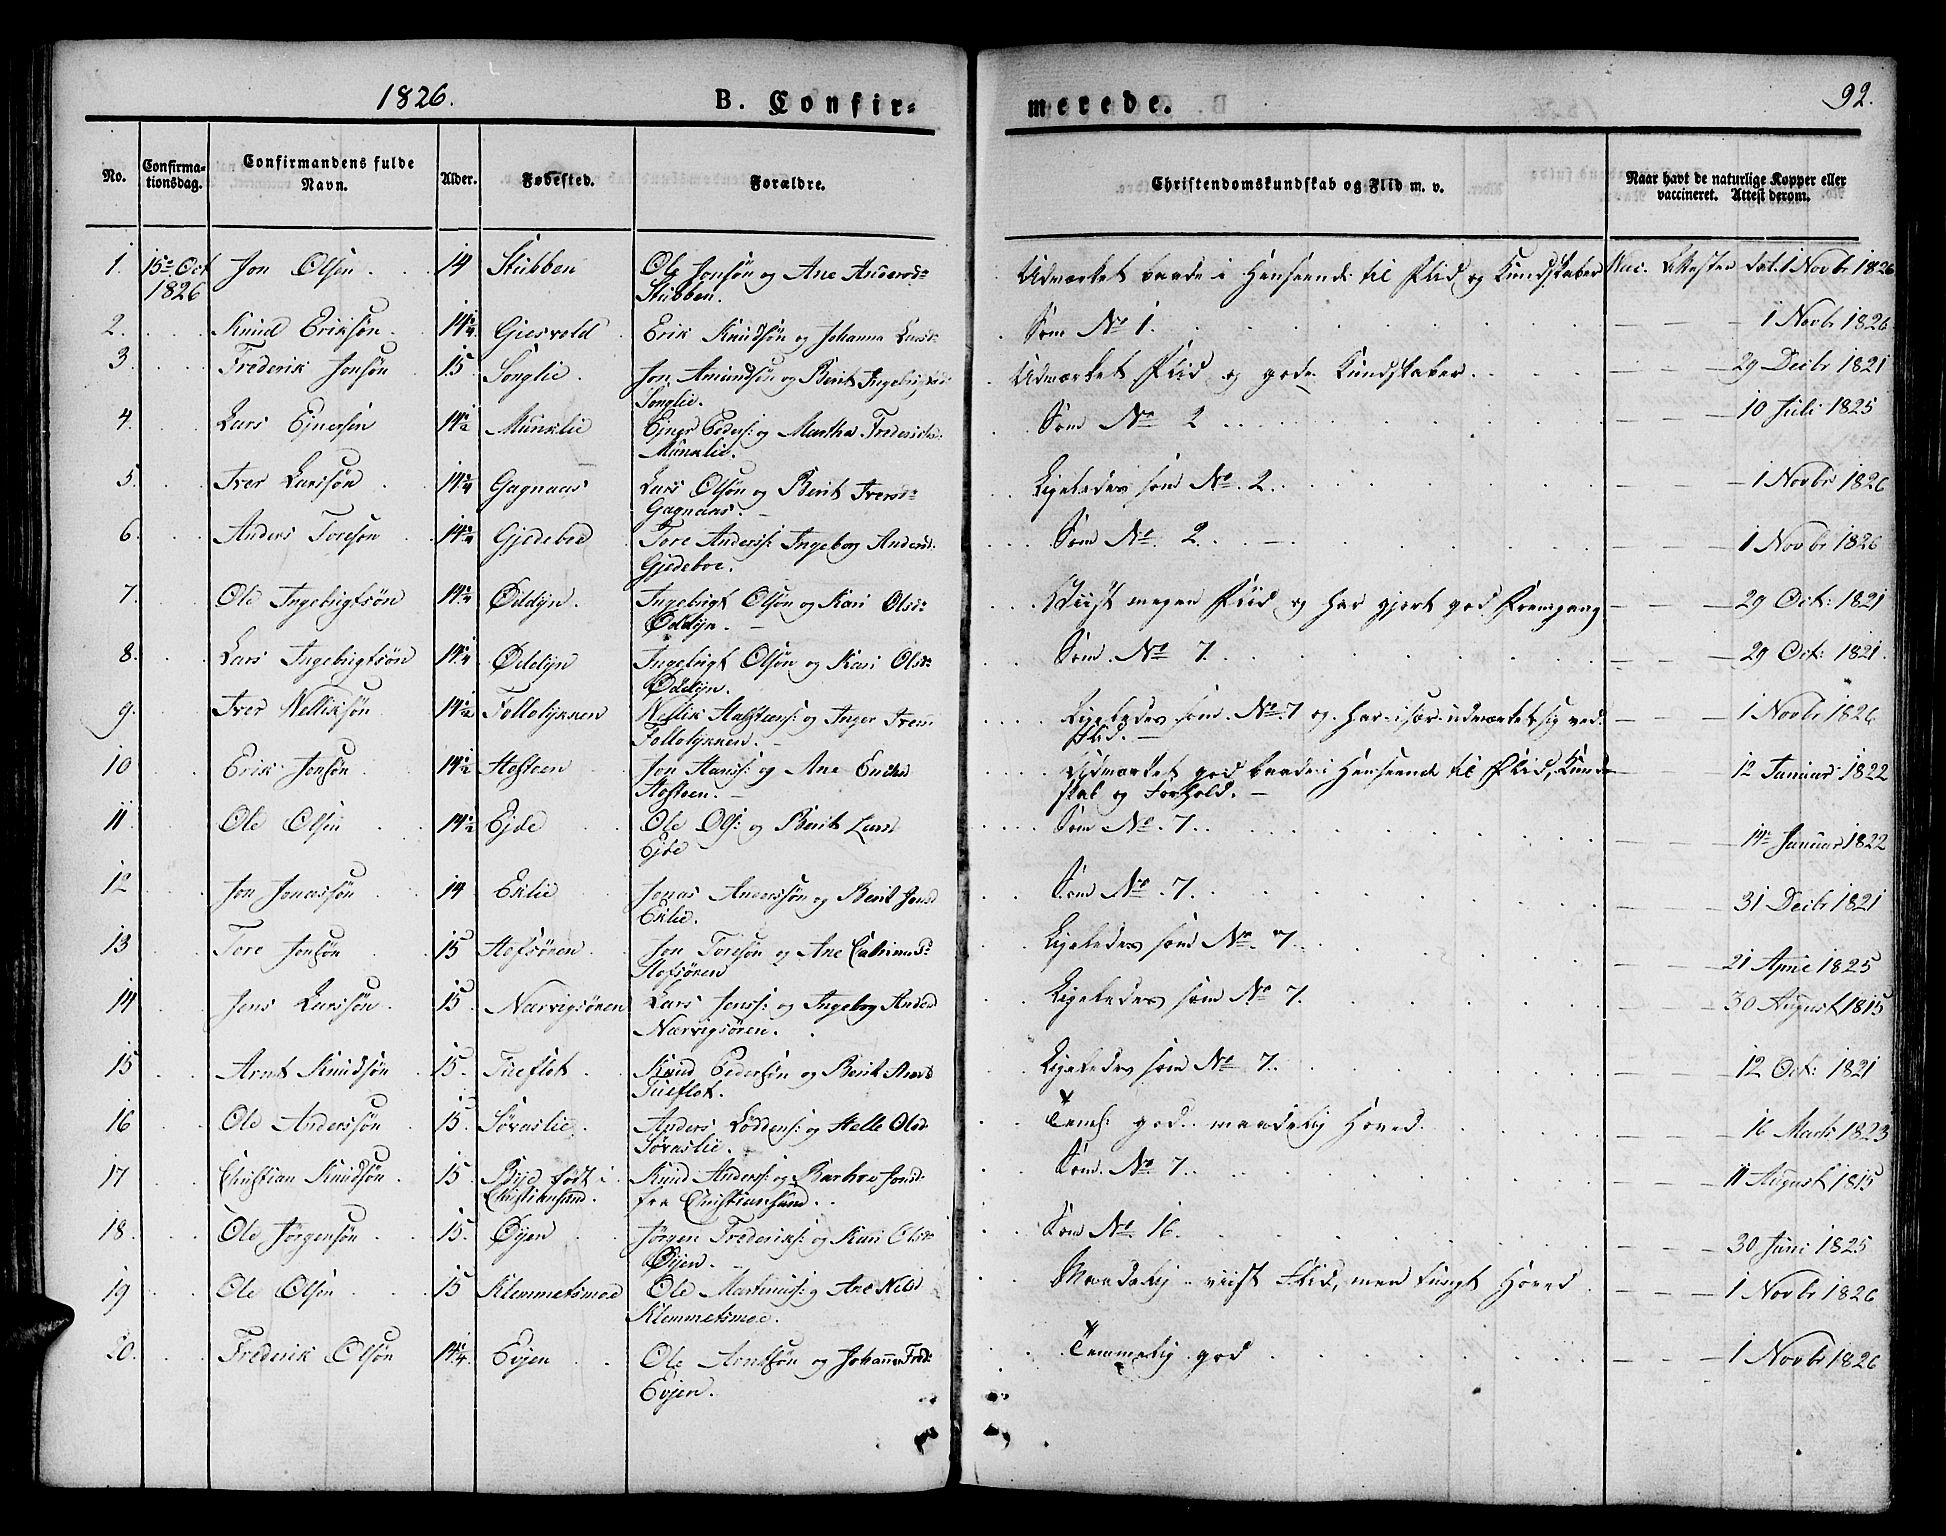 1826. B. Confir= merede. 92.
No. Confirma- tionsdag. Confirmandens fulde Navn. Alder. Fødested. Forældre. Christendomskundskab og Flid m. v. Naar havt de naturlige Kopper eller vaccineret. Attest derom.
1. 15de Oct 1826 Jon Olsen 14 Stubben Ole Jonsøn og Ane Andersd: Stubben. Udmærket baade i Henseende til Flid og Kundskaber Vac. Attesten dat. 1 Novbr 1826
2. Knud Eriksøn 14 1/4 Giesvold Erik Knudsøn og Johanna Larsd: Som No 1. 1 Novbr 1826
3. Frederik Jonsøn 15. Songlie Jon Amundsøn og Berit Ingebrigtsd: Songlie. Udmærket Flid og gode Kundskaber 29 Decbr 1821
4. Lars Ejnersen 14 1/2 Munklie Ejner Peders: og Martha Frederiks. Munklie. Som No 2 10 Juli 1825
5. Iver Larssøn 14 3/4 Gagnaas Lars Olsøn og Berit Iversd: Gagnaas. Ligeledes som No. 2. 1 Novbr 1826
6. Anders Toresøn 14 3/4 Gjedeboe Tore Anderss: Ingeborg Andersd. Gjedeboe. Som No. 2. 1 Novbr 1826
7. Ole Ingebrigtsøn 14 3/4 Øddyn. Ingebrigt Olsøn og Kari Olsd: Øddyn. Viist megen Flid og har gjort god Fremgang 29 Oct: 1821
8. Lars Ingebrigtsøn 14 1/4 Øddyn Ingebrigt Olsøn og Kari Olsd: Øddyn. Som No 7. 29 Oct: 1821.
9. Iver Nelliksøn 14 1/2 Follolykken Nellik Halstens: og Inger Ivers: Follolykken. Ligeledes som No. 7 og har især udmærket sig ved Flid. 1 Novbr 1826
10 Erik Jonsøn 14 1/2 Hosteen Jon Hanss: og Ane Eriksd Hosteen. Udmærket god baade i Henseende til Flid, Kundskab og Forhold. 12 Januar 1822
11. Ole Olsen 14 1/2 Ejde Ole Ols: og Berit Larsd Ejde Som No. 7. 14 Januar 1822
12 Jon Jonassøn 14 Eklie Jonas Anderssøn og Berit Jonsd Eklie. Som No. 7. 31 Decbr 1821
13 Tore Jonsøn 15 Hofsøren Jon Toresøn og Ane Cathrinesd: Hofsøren Ligeledes som No. 7 21 April 1825
14 Jens Larssøn 15. Narvigsøren Lars Jenss: og Ingeborg Andersd Narvigsøren. Ligeledes som No 7. 30 August 1815
15 Arnt Knudsøn 15. Tueflot Knud Pedersøn og Berit Arntsd Tueflot. Ligeledes som No 7. 12 Oct: 1821
16 Ole Anderssøn 15. Søraslie Anders Loddens: og Helle Olsd Søraslie. Temel. god maadelig Hoved. 16 Marts 1823
17 Christian Knudsøn 15. Bye født i Christiansund. Knud Anderss: og Barbro Jonsd. fra Christiansund. Som No 7. 11 August 1815
18. Ole Jørgensøn 15. Øyen Jørgen Frederiks: og Kari Olsd: Øyen. Som No 16. 30 Juni 1825
19 Ole Olsen 15 Klemmetsmoe Ole Martinus: og Ane Nelsd Klemmetsmoe. Maadelig viist Flid, men tungt Hoved. 1 Novbr 1826
20. Frederik Olsøn 14 1/4 Evjen Ole Arntsøn og Johanna Fred: Evjen. Temmelig god 1 Novbr 1826